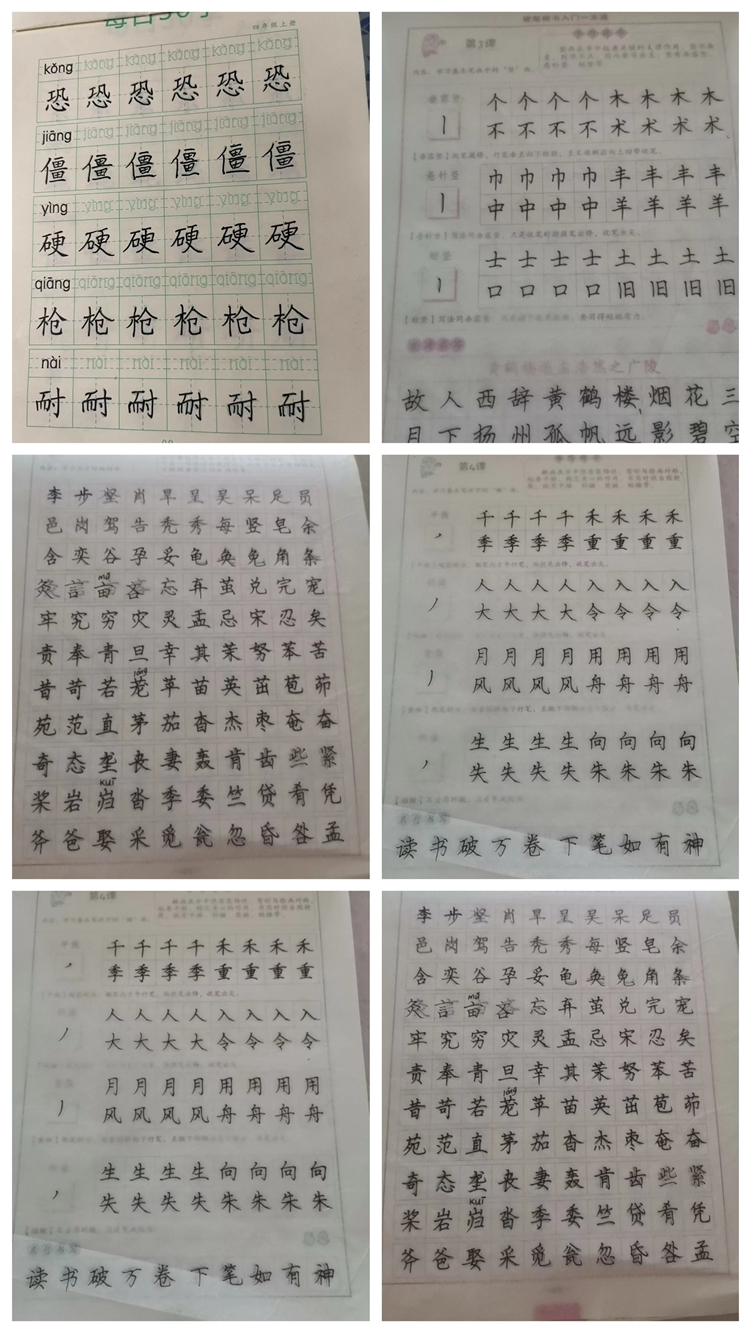 每日30字
四年级上册
kǒng kǒng kǒng kǒng kǒng kǒng
恐 恐 恐 恐 恐 恐
jiāng jiāng jiāng jiāng jiāng jiāng
僵 僵 僵 僵 僵 僵
yìng yìng yìng yìng yìng yìng
硬 硬 硬 硬 硬 硬
qiāng qiāng qiāng qiāng qiāng qiāng
枪 枪 枪 枪 枪 枪
nài nài nài nài nài nài
耐 耐 耐 耐 耐 耐
第3课
垂露竖
个 个 个 个 木 木 木 木
不 不 不 不 术 术 术 术
悬针竖
巾 巾 巾 巾 丰 丰 丰 丰
中 中 中 中 羊 羊 羊 羊
短竖
士 士 士 士 土 土 土 土
口 口 口 口 旧 旧 旧 旧
之广陵
故 人 西 辞 黄 鹤 楼, 烟 花 三
月 下 扬 州 孤 帆 远 影 碧 空
李 步 坚 肖 早 呈 吴 呆 足 员
邑 岗 驾 告 秃 秀 每 竖 皂 余
含 奕 谷 孕 妥 龟 奂 兔 角 条
言 亩 忘 弃 茧 兑 完 宠
mǔ
牢 究 穷 灾 灵 盂 忌 宋 忍 矣
责 奉 青 旦 幸 其 茉 努 苯 苦
昔 苛 若 茏 苹 苗 英 茁 苞 茆
lóng
苑 范 直 茅 茄 杳 杰 枣 奄 奋
奇 态 垄 丧 妻 轰 肯 齿 些 紧
桨 岩 岿 沓 季 委 竺 贷 肴 凭
kuī
斧 爸 娶 采 觅 瓮 忽 昏 咎 孟
第4课
平撇
千 千 千 千 禾 禾 禾 禾
季 季 季 季 重 重 重 重
人 人 人 人 入 入 入 入
大 大 大 大 令 令 令 令
月 月 月 月 用 用 用 用
风 风 风 风 舟 舟 舟 舟
生 生 生 生 向 向 向 向
失 失 失 失 朱 朱 朱 朱
读 书 破 万 卷 下 笔 如 有 神
第4课
平撇
千 千 千 千 禾 禾 禾 禾
季 季 季 季 重 重 重 重
人 人 人 人 入 入 入 入
大 大 大 大 令 令 令 令
月 月 月 月 用 用 用 用
风 风 风 风 舟 舟 舟 舟
生 生 生 生 向 向 向 向
失 失 失 失 朱 朱 朱 朱
读 书 破 万 卷 下 笔 如 有 神
李 步 坚 肖 早 呈 吴 呆 足 员
邑 岗 驾 告 秃 秀 每 竖 皂 余
含 奕 谷 孕 妥 龟 奂 兔 角 条
言 亩 忘 弃 茧 兑 完 宠
mǔ
牢 究 穷 灾 灵 盂 忌 宋 忍 矣
责 奉 青 旦 幸 其 茉 努 苯 苦
昔 苛 若 茏 苹 苗 英 茁 苞 茆
lóng
苑 范 直 茅 茄 杳 杰 枣 奄 奋
奇 态 垄 丧 妻 轰 肯 齿 些 紧
桨 岩 岿 沓 季 委 竺 贷 肴 凭
kuī
斧 爸 娶 采 觅 瓮 忽 昏 咎 孟